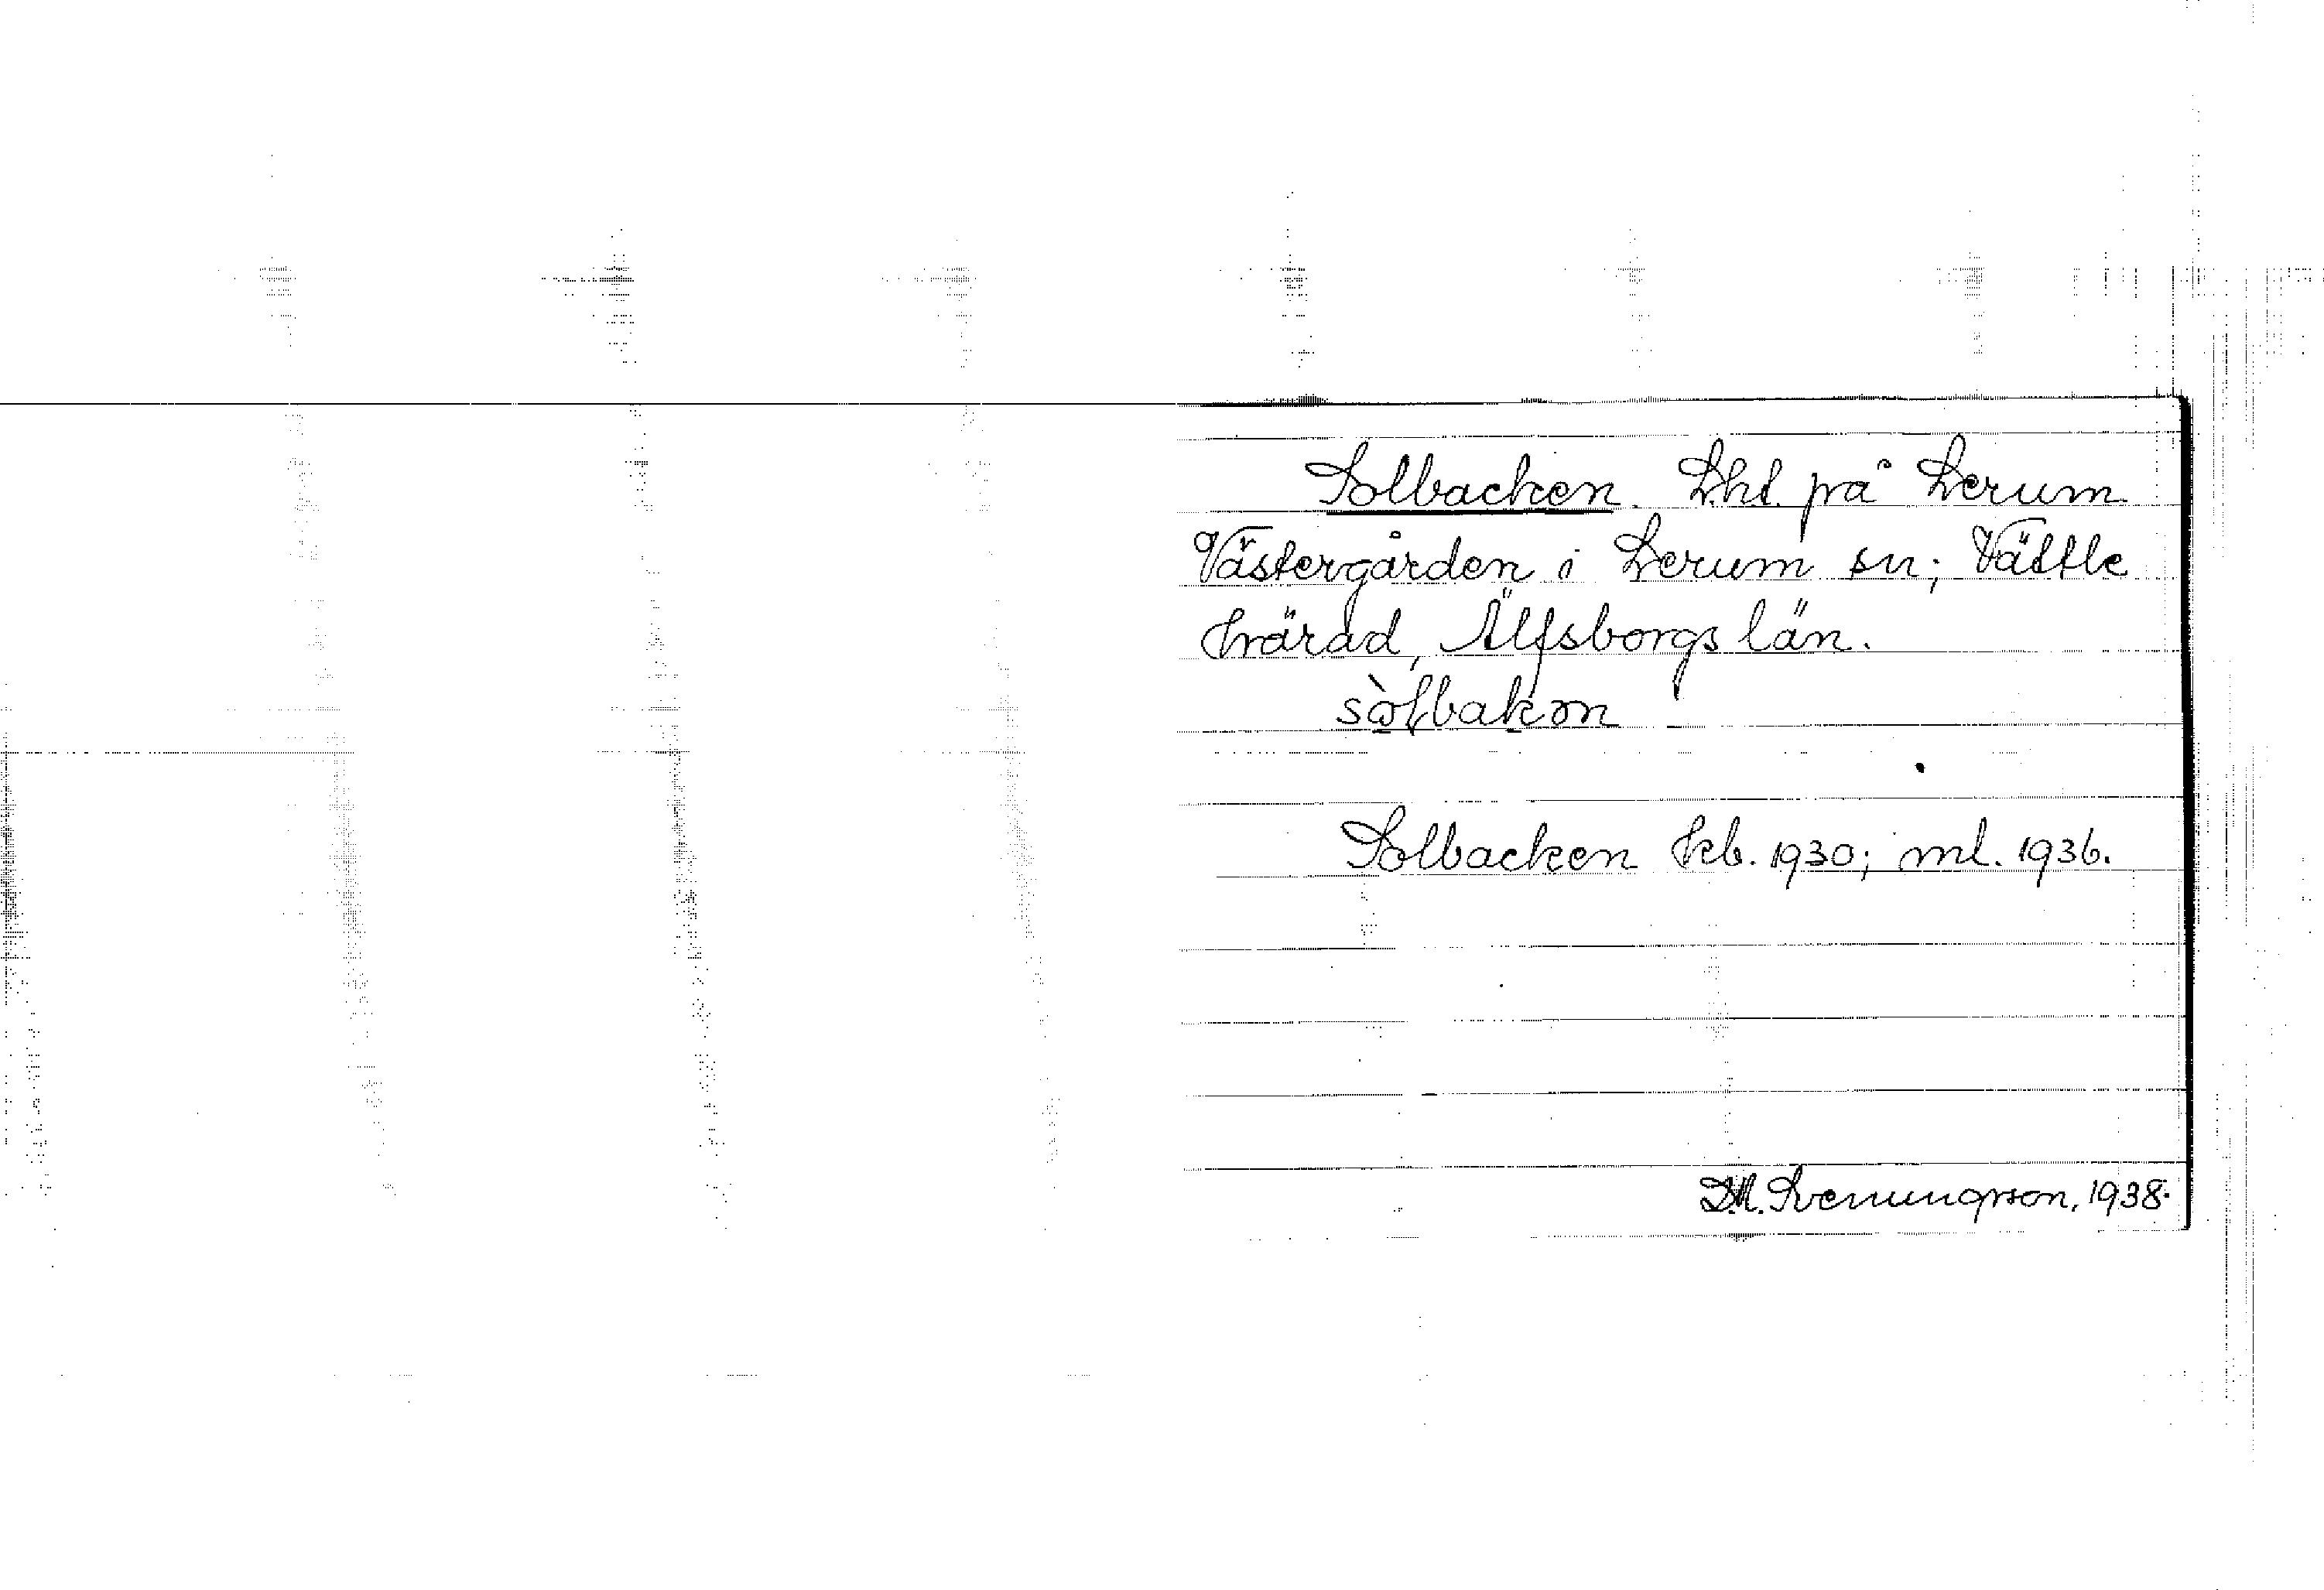 Solbacken. Lht. på Lerum
Västergården i Lerum sn; Vättle
härad, Älfsborgs län.
sòlbakən
Solbacken kb. 1930; ml. 1936.
D.A. Svenungsson, 1938.